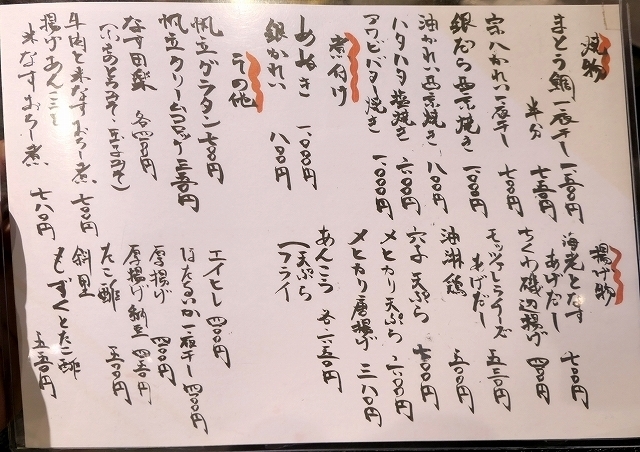 焼物
まとう鯛一夜干し 一、五〇〇円
半分 七五〇円
宗八かれい一夜干し 七〇〇円
銀だら西京焼き 一、〇〇〇円
油かれい西京焼き 八〇〇円
ハタハタ塩焼き 六〇〇円
アワビバター焼き 一、〇〇〇円
煮付け
めぬき 一、〇〇〇円
銀かれい 八〇〇円
その他
帆立グラタン 七〇〇円
帆立クリームコロッケ 三五〇円
なす田楽 各四〇〇円
牛肉と米なすおろし煮 七〇〇円
揚げあん
米なすおろし煮 七八〇円
揚げ物
海老となす
あげだし 七〇〇円
ちくわ磯辺揚げ 四〇〇円
モッツァレラチーズ
あげだし 五五〇円
油淋鶏 五〇〇円
穴子天ぷら 七〇〇円
メヒカリ天ぷら
メヒカリ唐揚げ 三八〇円
あんこう 各六五〇円
天ぷら
フライ
エイヒレ 四〇〇円
ほたるいか一夜干し 四〇〇円
厚揚げ 四〇〇円
厚揚げ納豆 四五〇円
たこ酢 五〇〇円
斜里
もずくとたこ酢 五五〇円